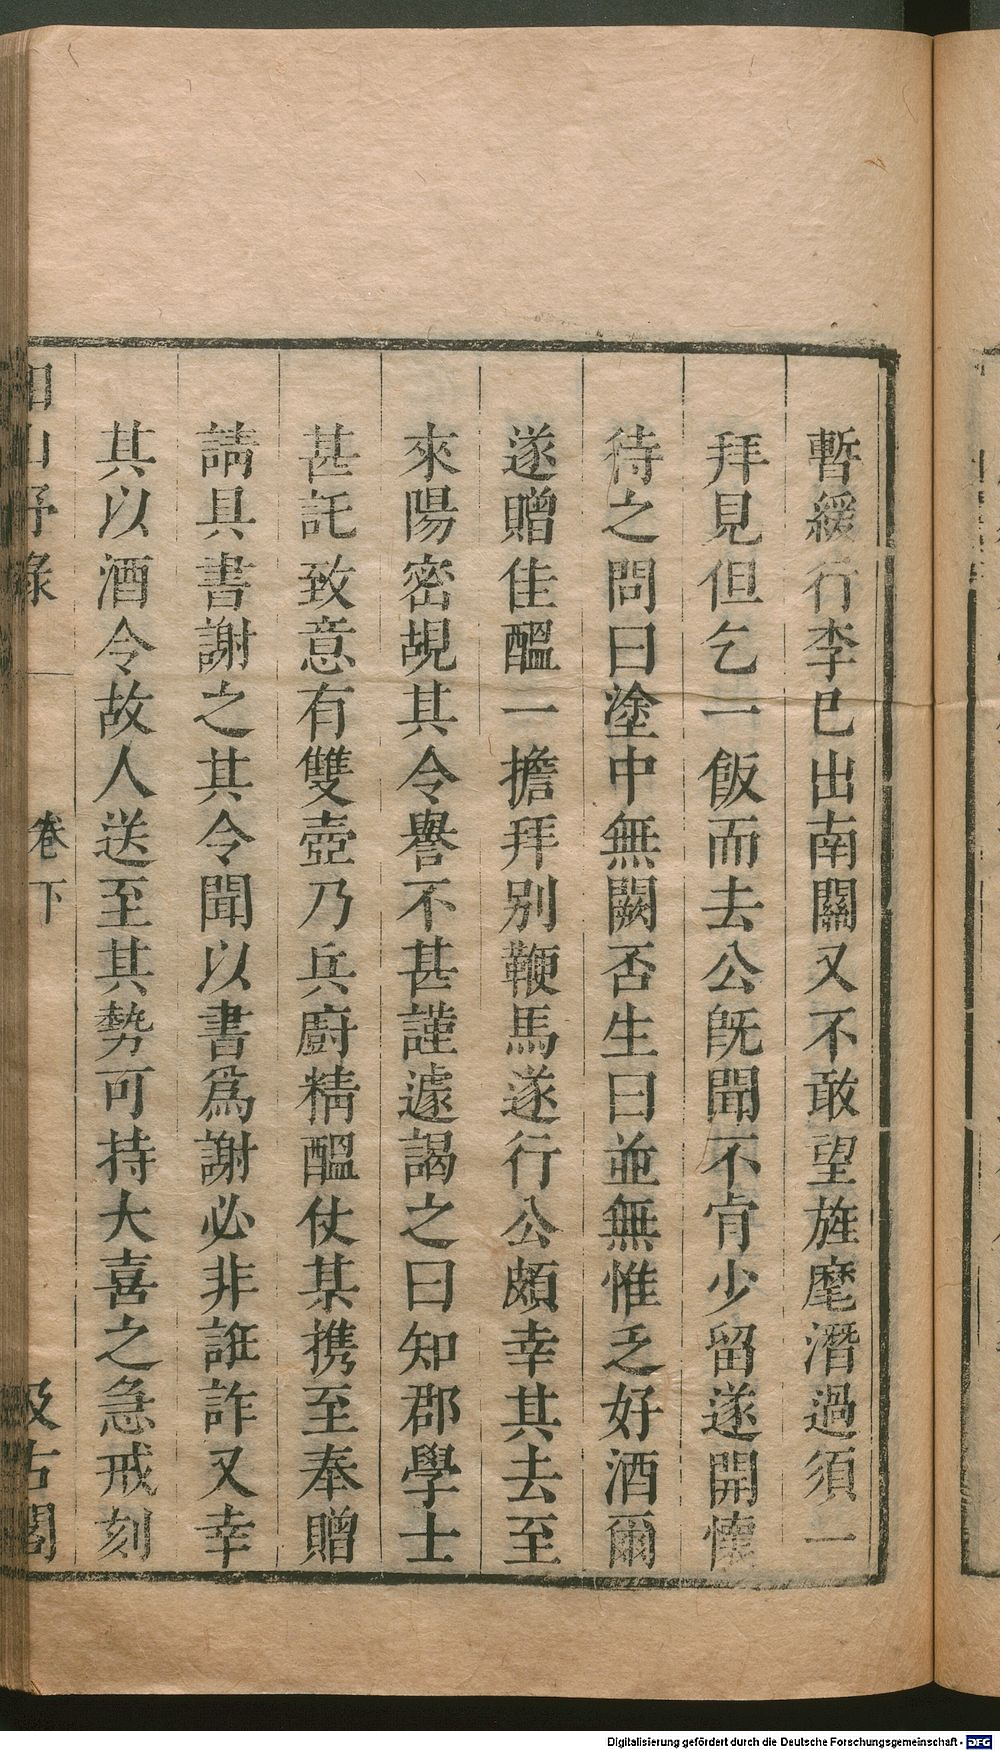 暫緩行李已出南關又不敢望旌麾潛過須一
拜見但乞一飯而去公旣聞不肯少留遂開懷
待之問曰塗中無闕否生曰並無惟乏好酒爾
遂贈佳醞一擔拜別鞭馬遂行公頗幸其去至
來陽密覘其令譽不甚謹遽謁之曰知郡學士
甚託致意有雙壺乃兵廚精醞仗某携至奉贈
請具書謝之其令聞以書爲謝必非誑詐又幸
其以酒令故人送至其勢可持大喜之急戒刻
山予錄
卷下
汲古閣
Digitalisierung gefördert durch die Deutsche Forschungsgemeinschaft - DFG